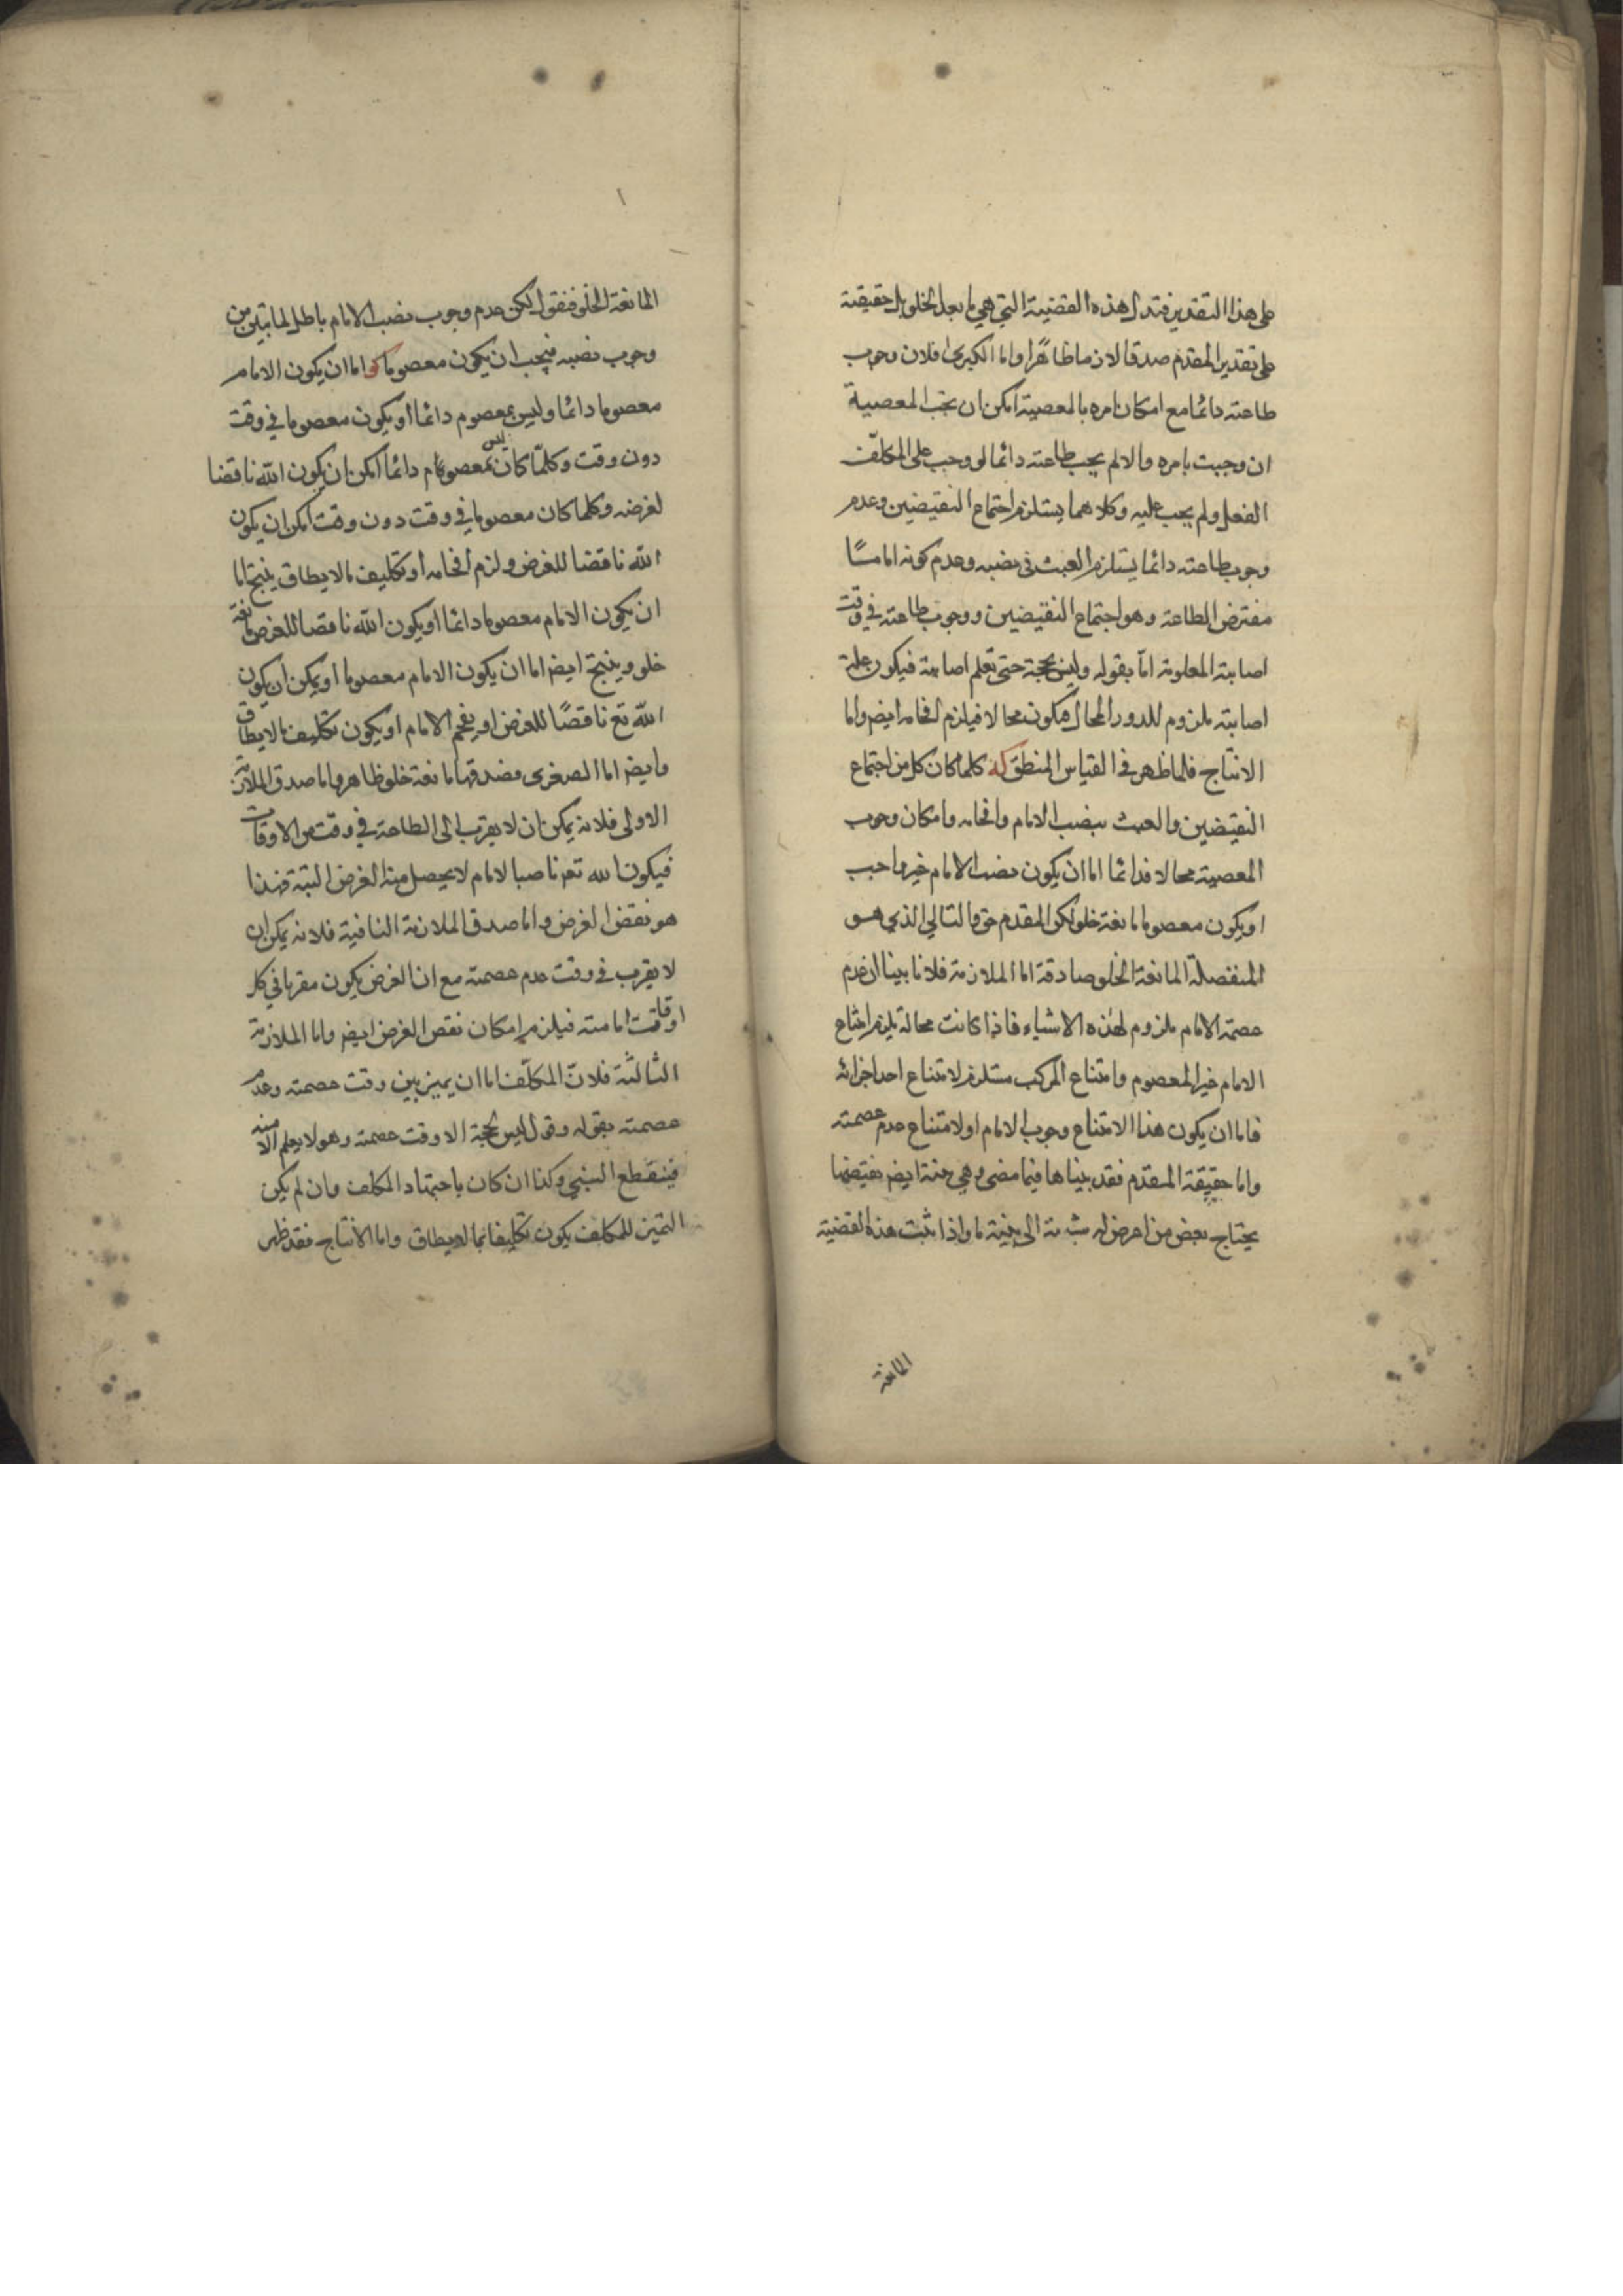 على هذا التقدير فتدل هذه القضية التي هي مانعة الخلو بل حقيقية
على تقدير المقدم صدقا لازما ظاهرا واما الكبرى فلان وجوب
طاعته دائما مع امكان امره بالمعصية امكن ان تجب المعصية
ان وجبت بامره والا لم يجب طاعته دائما لو وجب على المكلف
الفعل ولم يجب عليه وكلاهما يستلزم اجتماع النقيضين وعدم
وجوب طاعته دائما يستلزم العبث في نصبه وعدم كونه اماما
مفترض الطاعة وهو اجتماع النقيضين ووجوب طاعته في وقت
اصابته المعلومة اما بقوله وليس بحجة حتى تعلم اصابته فيكون علة
اصابته ملزوم للدور المحال فيكون محالا فيلزم افحامه ايض واما
الانتاج فلما ظهر في القياس المنطق كه كلما كان كل من اجتماع
النقيضين والعبث بنصب الامام وافحامه وامكان وجوب
المعصية محالا فدائما اما ان يكون نصب الامام غير واجب
او يكون معصوما مانعة خلو لكن المقدم حق فالتالي الذي هو
المنفصلة المانعة الخلو صادقة اما الملازمة فلانا بينا ان عدم
عصمة الامام ملزوم لهذه الاشياء فاذا كانت محالة يلزم امتناع
الامام غير المعصوم وامتناع المركب مستلزم لامتناع احد اجزائه
فاما ان يكون هذا الامتناع وجوب الامام او لامتناع عدم عصمته
واما حقيقة المقدم فقد بيناها فيما مضى وهي ايض نقيضها
يحتاج بعض من اعرض له شبهة الى بينة ما واذا ثبت هذه القضية
المانعة
المانعة الخلو فنقول لكن عدم وجوب نصب الامام باطل لما تبين من
وجوب نصبه فيجب ان يكون معصوما كو اما ان يكون الامام
معصوما دائما وليس بمعصوم دائما او يكون معصوما في وقت
دون وقت وكلما كان ليس بمعصوم دائما امكن ان يكون الله ناقضا
لغرضه وكلما كان معصوما في وقت دون وقت امكن ان يكون
الله ناقضا للغرض ولزم افحامه او تكليف مالا يطاق ينتج اما
ان يكون الامام معصوما دائما او يكون الله ناقضا للغرض مانعة
خلو وينتج ايض اما ان يكون الامام معصوما او يمكن ان يكون
الله تع ناقضا للغرض او يفحم الامام او يكون تكليف مالا يطاق
وايض اما الصغرى فصدقها مانعة خلو ظاهر واما صدق الملازمة
الاولى فلانه يمكن ان لا يقرب الى الطاعة في وقت من الاوقات
فيكون الله تع ناصبا لامام لا يحصل منه الغرض البتة فهذا
هو نقض الغرض واما صدق الملازمة الثانية فلانه يمكن ان
لا يقرب في وقت عدم عصمته مع ان الغرض يكون مقربا في كل
اوقات امامته فيلزم امكان نقض الغرض ايض واما الملازمة
الثالثة فلان المكلف اما ان يميز بين وقت عصمته وعدم
عصمته بقوله وقوله ليس بحجة الا وقت عصمته وهو لا يعلم الا منه
فينقطع النبي وكذا ان كان باجتهاد المكلف وان لم يكن
التميز للمكلف يكون تكليفا بما لا يطاق واما الانتاج فقد ظهر